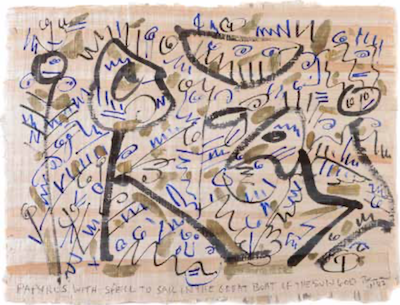 PAPYRUS WITH SPACE TO SAIL IN THE GREAT BOAT OF THE SUN GOD